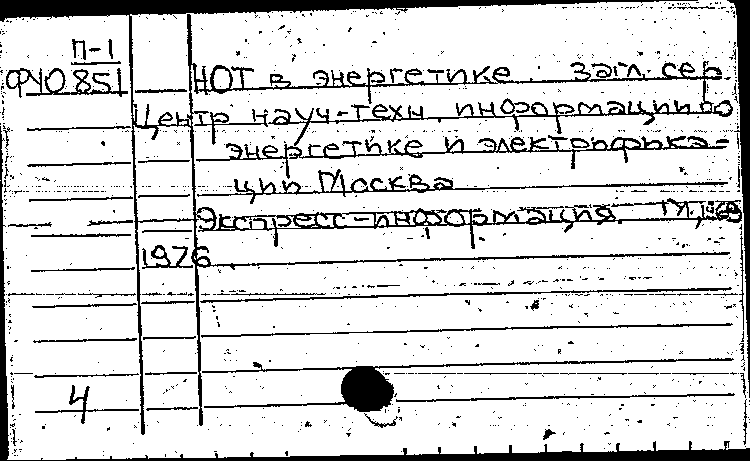 П-1
ФУО851 НОТ в энергетике. Загл. сер.
Центр науч-техн. информации по
энергетике и электрифика-
ции Москва
Экспресс-информация. М., 1969
1976
4